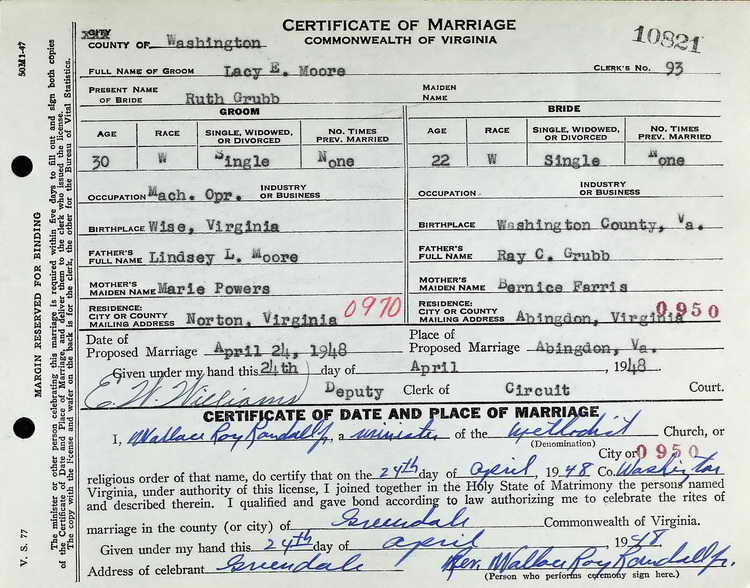 CERTIFICATE OF MARRIAGE
COMMONWEALTH OF VIRGINIA
10821
COUNTY OF Washington
FULL NAME OF GROOM Lacy E. Moore CLERK'S NO. 93
PRESENT NAME OF BRIDE Ruth Grubb MAIDEN NAME
GROOM BRIDE
AGE RACE SINGLE, WIDOWED, OR DIVORCED NO. TIMES PREV. MARRIED AGE RACE SINGLE, WIDOWED, OR DIVORCED NO. TIMES PREV. MARRIED
30 W Single None 22 W Single None
OCCUPATION Mach. Opr. INDUSTRY OR BUSINESS OCCUPATION INDUSTRY OR BUSINESS
BIRTHPLACE Wise, Virginia BIRTHPLACE Washington County, Va.
FATHER'S FULL NAME Lindsey L. Moore FATHER'S FULL NAME Ray C. Grubb
MOTHER'S MAIDEN NAME Marie Powers MOTHER'S MAIDEN NAME Bernice Farris
RESIDENCE: CITY OR COUNTY MAILING ADDRESS Norton, Virginia 0970 RESIDENCE: CITY OR COUNTY MAILING ADDRESS Abingdon, Virginia 0950
Date of Proposed Marriage April 24, 1948 Place of Proposed Marriage Abingdon, Va.
Given under my hand this 24th day of April, 1948
E. W. Williams Deputy Clerk of Circuit Court.
CERTIFICATE OF DATE AND PLACE OF MARRIAGE
I, Wallace Roy Randall Jr., a minister of the Methodist Church, or
(Denomination) City or 0950
religious order of that name, do certify that on the 24th day of April, 1948 Co. Washington
Virginia, under authority of this license, I joined together in the Holy State of Matrimony the persons named
and described therein. I qualified and gave bond according to law authorizing me to celebrate the rites of
marriage in the county (or city) of Greendale Commonwealth of Virginia.
Given under my hand this 24th day of April 1948
Address of celebrant Greendale Rev. Wallace Roy Randall Jr.
(Person who performs ceremony sign here.)
50M1-47
V. S. 77
MARGIN RESERVED FOR BINDING
The minister or other person celebrating this marriage is required within five days to fill out and sign both copies
of the Certificate of Date and Place of Marriage, and deliver them to the clerk who issued the license.
The copy with the license and order on the back is for the clerk, the other for the Bureau of Vital Statistics.